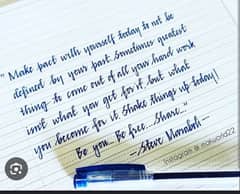 "Make pact with yourself today to not be
defined by your past. Sometimes greatest
thing to come out of all your hard work
isn't what you get for it, but what
you become for it. Shake things up today!
Be you... Be free... Share..."
—Steve Maraboli—
Instagram @ noiworld22